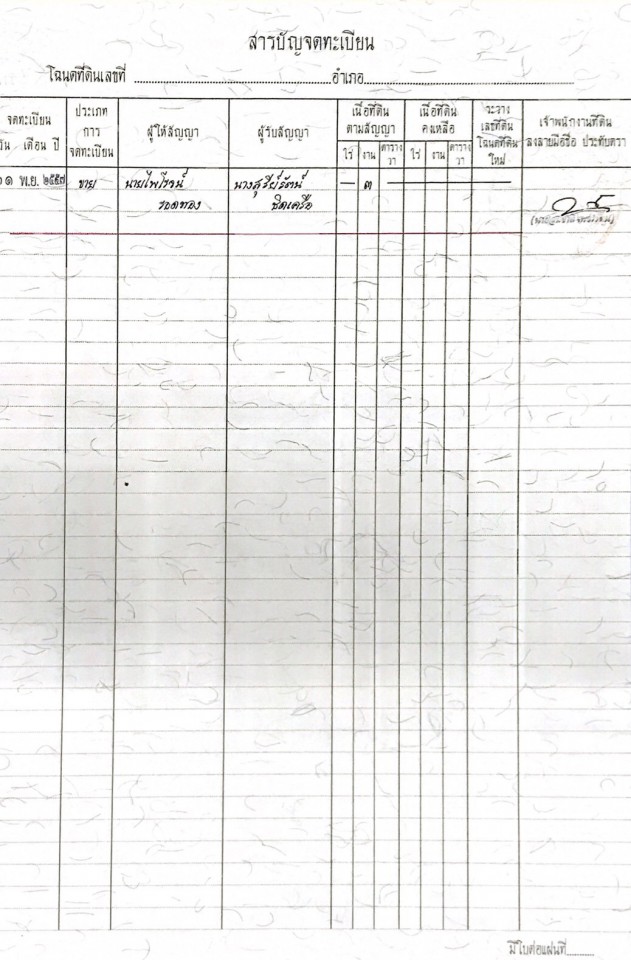 สารบัญจดทะเบียน
โฉนดที่ดินเลขที่ ........ อำเภอ........
จดทะเบียน
วัน เดือน ปี
ประเภท
การ
จดทะเบียน
ผู้ให้สัญญา
ผู้รับสัญญา
เนื้อที่ดิน
ตามสัญญา
ไร่ งาน ตาราง
วา
เนื้อที่ดิน
คงเหลือ
ไร่ งาน ตาราง
วา
ระวาง
เลขที่ดิน
โฉนดที่ดิน
ใหม่
เจ้าพนักงานที่ดิน
ลงลายมือชื่อ ประทับตรา
๑ พ.ย. ๒๕๕๗ ขาย นายไพโรจน์ นางสุรีย์รัตน์ — ๓ —
รอดทอง ชิดเครือ
มีใบต่อแผ่นที่........